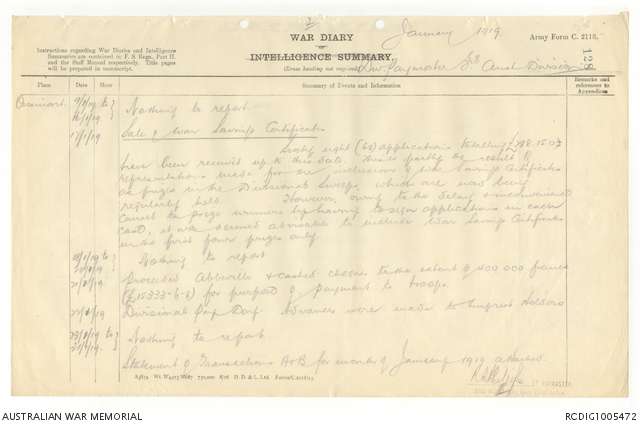 January 1919.
WAR DIARY
or
INTELLIGENCE SUMMARY.
(Erase heading not required.)
Army Form C. 2118.
Instructions regarding War Diaries and Intelligence
Summaries are contained in F. S. Regs., Part II.
and the Staff Manual respectively. Title pages
will be prepared in manuscript.
Div. Paymaster 5th Aust Division
Place
Date
Hour
Summary of Events and Information
Remarks and
references to
Appendices
to
Nothing to report
17/1/19
Sale of War Savings Certificates
Sixty eight (68) applications totalling
have been received up to this date. This is partly the result of
representations made for the inclusion of War Savings Certificates
as prizes in the Divisional Sweeps, which are now being
regularly held. However, owing to the delay & inconvenience
caused the prize winners by having to sign applications in each
case, it was deemed advisable to include War Savings Certificates
in the first four prizes only.
to
Nothing to report
21/1/19
Proceeded Abbeville & cashed cheques to the extent of 400.000 francs
(£15333-6-8) for purpose of payment to troops.
22/1/19
Divisional Pay Day. Advances were made to Imprest Holders
23/1/19 to
31/1/19
Nothing to report
Statement of Transactions A & B for month of January 1919 attached
D. D. & L. Ltd.
AUSTRALIAN WAR MEMORIAL
RCDIG1005472